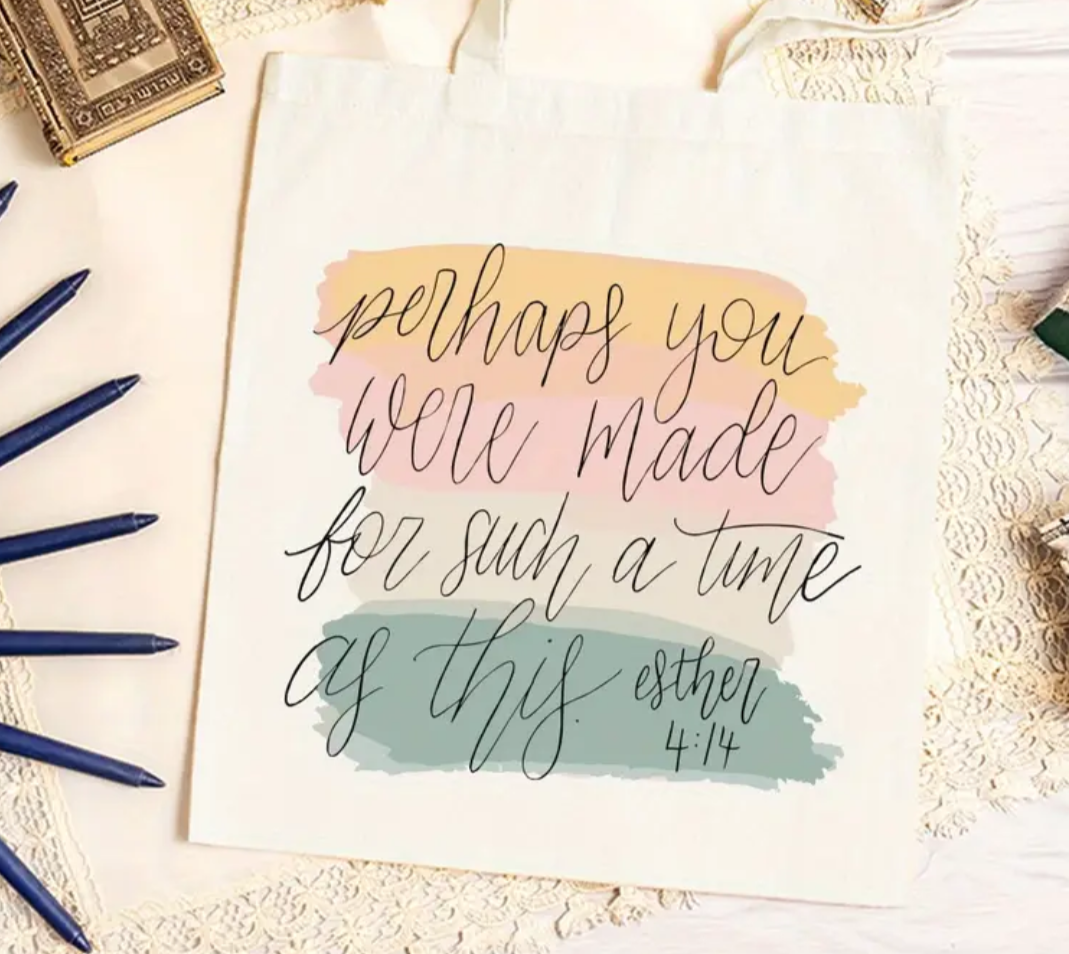 perhaps you
were made
for such a time
as this. esther
4:14